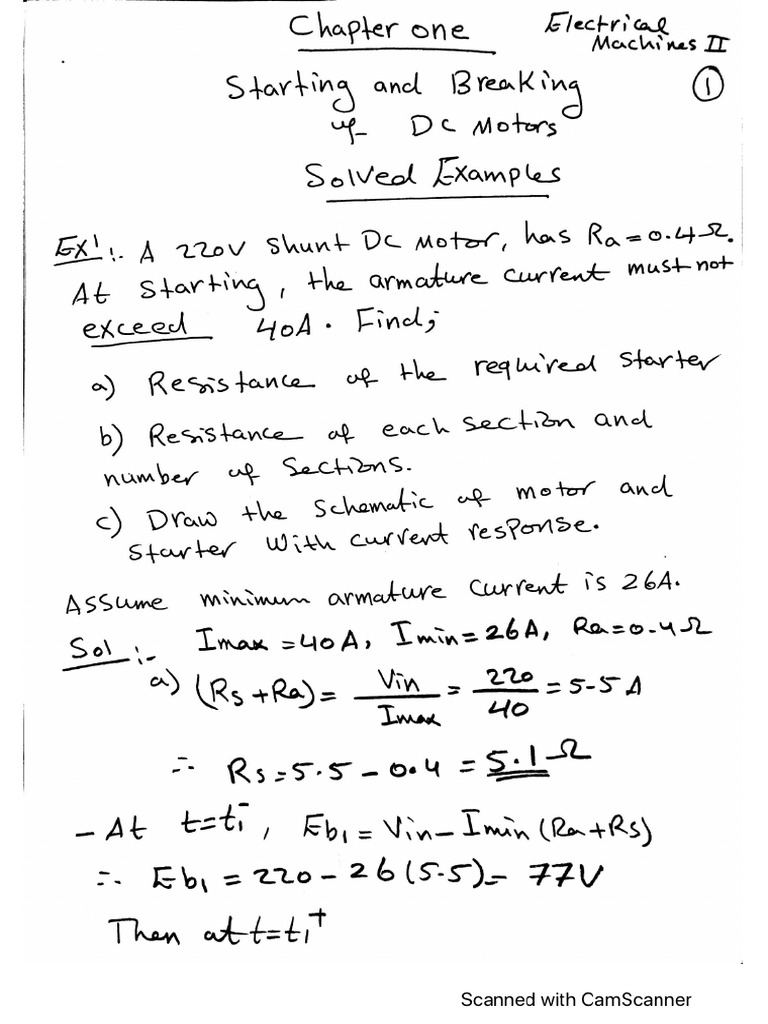 Chapter one
Electrical
Machines II
Starting and Breaking
①
of DC Motors
Solved Examples
Ex1:. A 220V Shunt DC Motor, has Ra=0.4Ω.
At Starting, the armature current must not
exceed 40A. Find;
a) Resistance of the required Starter
b) Resistance of each section and
number of Sections.
c) Draw the Schematic of motor and
Starter With current response.
Assume minimum armature current is 26A.
Sol:- Imax=40A, Imin=26A, Ra=0.4Ω
a) (Rs+Ra)= Vin/Imax = 220/40 =5.5 A
∴ Rs=5.5-0.4=5.1Ω
- At t=t₁⁻, Eb₁=Vin-Imin(Ra+Rs)
∴ Eb₁=220-26(5.5)=77V
Then at t=t₁⁺
Scanned with CamScanner